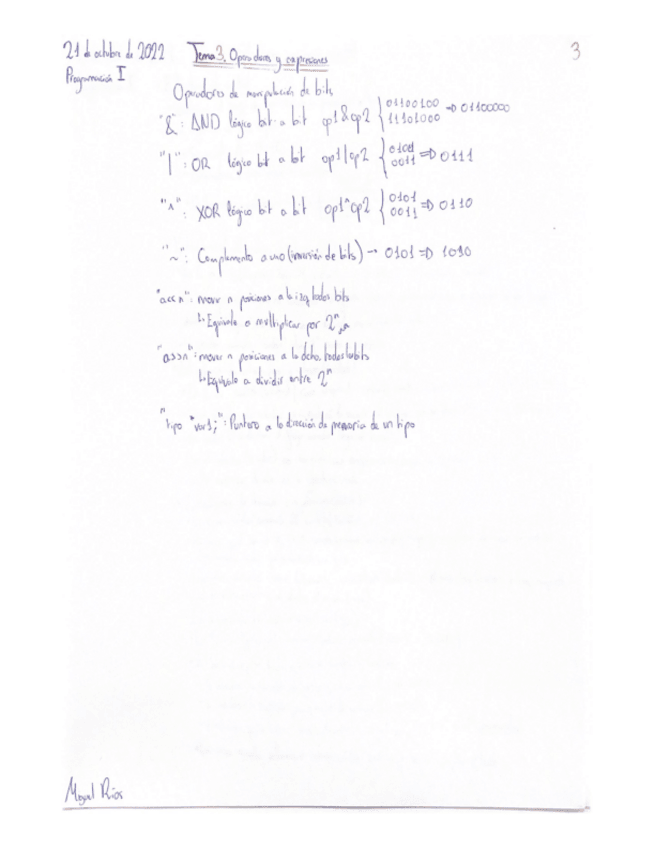 21 de octubre de 2022 Tema 3. Operadores y expresiones 3
Programación I
Operadores de manipulación de bits
"&": AND lógico bit a bit op1&op2 { 01100100 => 01100000
11101000
"|": OR lógico bit a bit op1|op2 { 0101 => 0111
0011
"^": XOR lógico bit a bit op1^op2 { 0101 => 0110
0011
"~": Complemento a uno (inversión de bits) → 0101 => 1010
"a<<n": mover n posiciones a la izq todos bits
↳ Equivale a multiplicar por 2^n
"a>>n": mover n posiciones a la dcha. todos los bits
↳ Equivale a dividir entre 2^n
"tipo *var1;": Puntero a la dirección de memoria de un tipo
Miguel Ríos